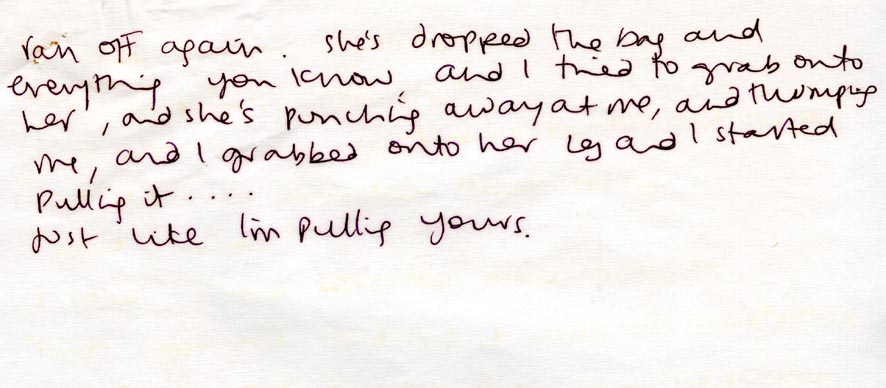 ran off again. she's dropped the bag and
everything you know, and I tried to grab onto
her, and she's punching away at me, and thumping
me, and I grabbed onto her leg and I started
pulling it ....
Just like I'm pulling yours.